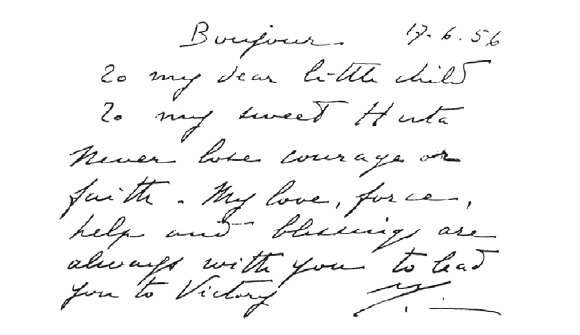 Bonjour. 17.6.56
To my dear little child
To my sweet Huta
Never lose courage or
faith. My love, force,
help and blessings are
always with you to lead
you to Victory